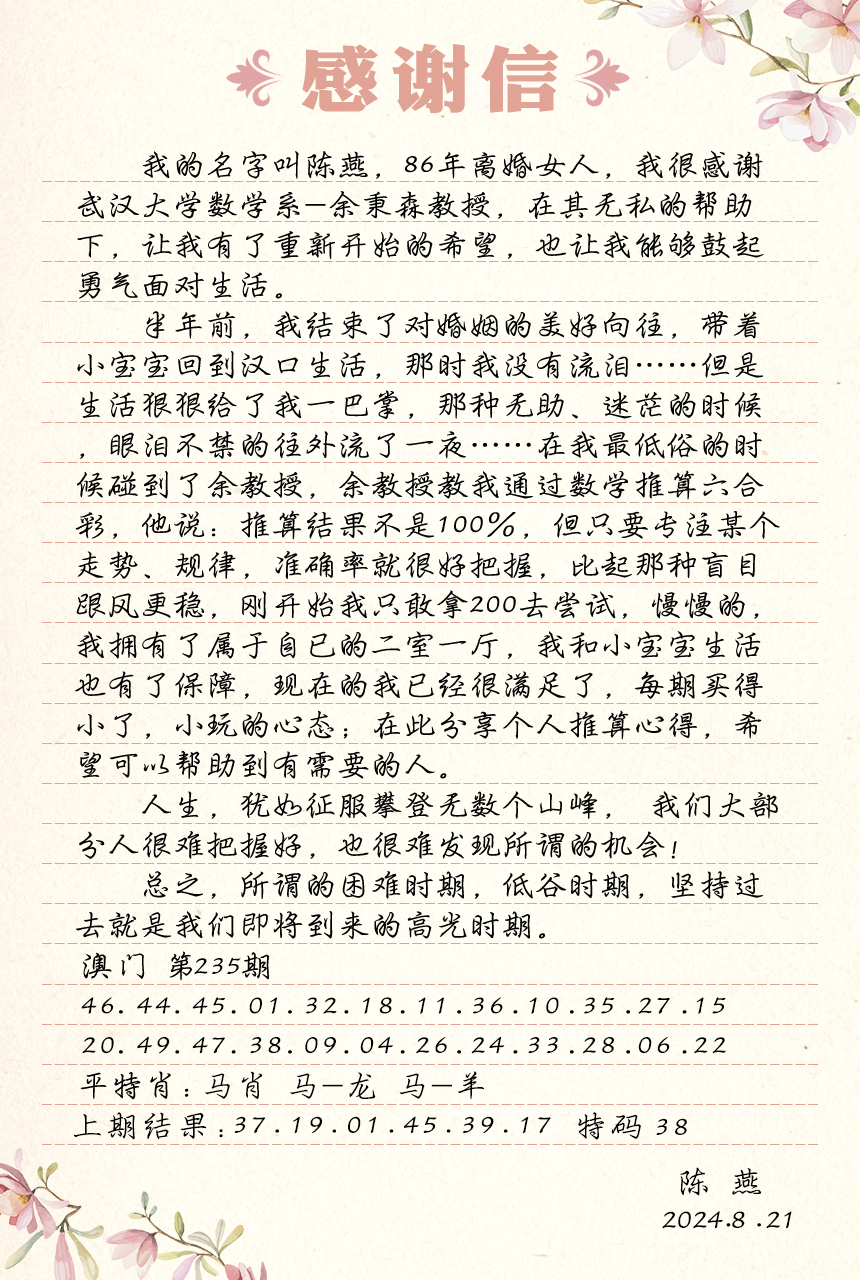 感谢信
我的名字叫陈燕，86年离婚女人，我很感谢
武汉大学数学系—余秉森教授，在其无私的帮助
下，让我有了重新开始的希望，也让我能够鼓起
勇气面对生活。
半年前，我结束了对婚姻的美好向往，带着
小宝宝回到汉口生活，那时我没有流泪……但是
生活狠狠给了我一巴掌，那种无助、迷茫的时候
，眼泪不禁的往外流了一夜……在我最低俗的时
候碰到了余教授，余教授教我通过数学推算六合
彩，他说：推算结果不是100%，但只要专注某个
走势、规律，准确率就很好把握，比起那种盲目
跟风更稳，刚开始我只敢拿200去尝试，慢慢的，
我拥有了属于自已的二室一厅，我和小宝宝生活
也有了保障，现在的我已经很满足了，每期买得
小了，小玩的心态；在此分享个人推算心得，希
望可以帮助到有需要的人。
人生，犹如征服攀登无数个山峰， 我们大部
分人很难把握好，也很难发现所谓的机会！
总之，所谓的困难时期，低谷时期，坚持过
去就是我们即将到来的高光时期。
澳门 第235期
46.44.45.01.32.18.11.36.10.35.27.15
20.49.47.38.09.04.26.24.33.28.06.22
平特肖：马肖 马—龙 马—羊
上期结果：37.19.01.45.39.17 特码 38
陈 燕
2024.8.21